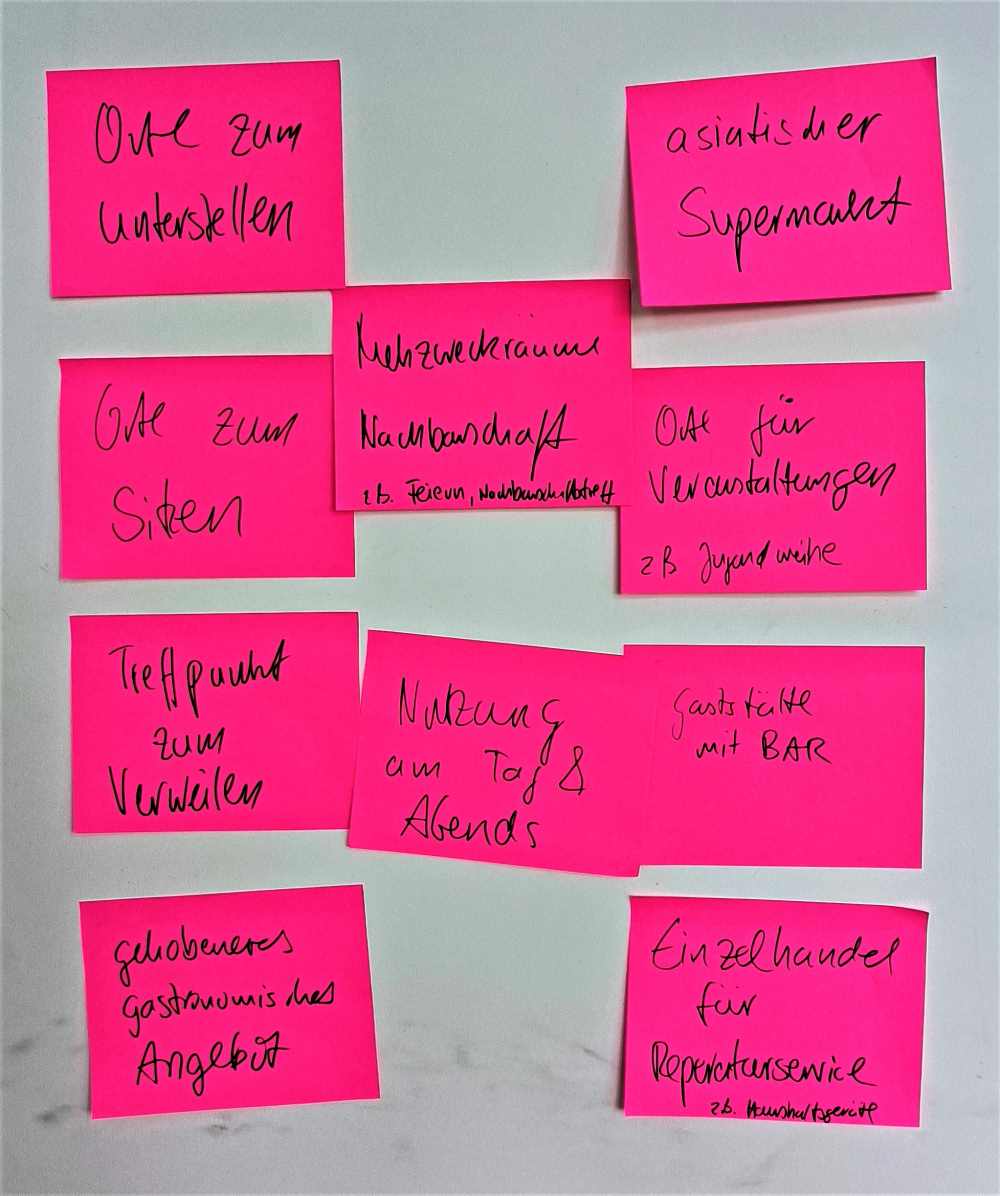 Orte zum
Unterstellen
asiatischer
Supermarkt
Mehrzweckräume
Nachbarschaft
z.B. Feiern, Nachbarschaftstreff
Orte zum
Sitzen
Orte für
Veranstaltungen
z B Jugendweihe
Treffpunkt
zum
Verweilen
Nutzung
am Tag &
Abends
Gaststätte
mit BAR
gehobeneres
gastronomisches
Angebot
Einzelhandel
für
Reperaturservice
z.B. Haushaltsgeräte